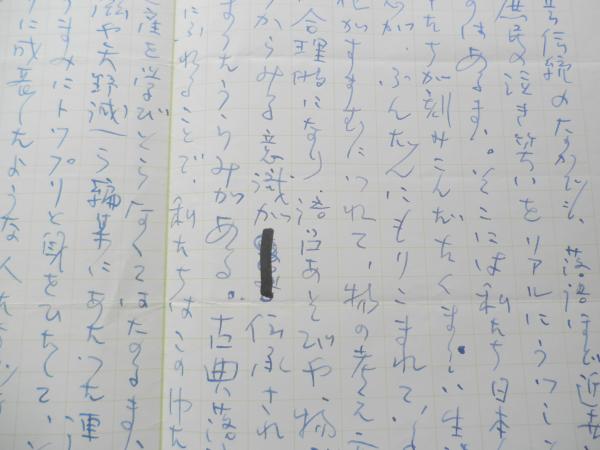 伝統のなかでも、落語ほど近世
庶民の泣き笑いをリアルにうつし
はあるます。そこには私たち日本
たちが刻みこんだたくましい生
が、ふんだんにもりこまれて、
化がすすむにつれて、物の考え
合理的になり 語呂あそびや、物
からみる意識が 伝承され
するうらみがある。古典落
にふれることで、私たちはこの
産を学びとらなくてはなるます
や矢野誠一ら編集にあたった連
すみにトップリと身をひたして、
に成長したような人たち